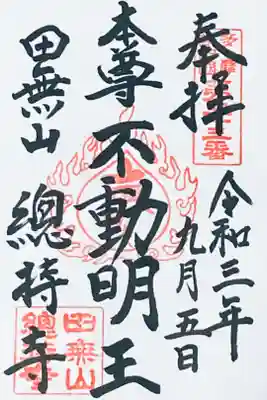 奉拝
令和三年
九月五日
本尊不動明王
田無山
總持寺
田無山
總持寺